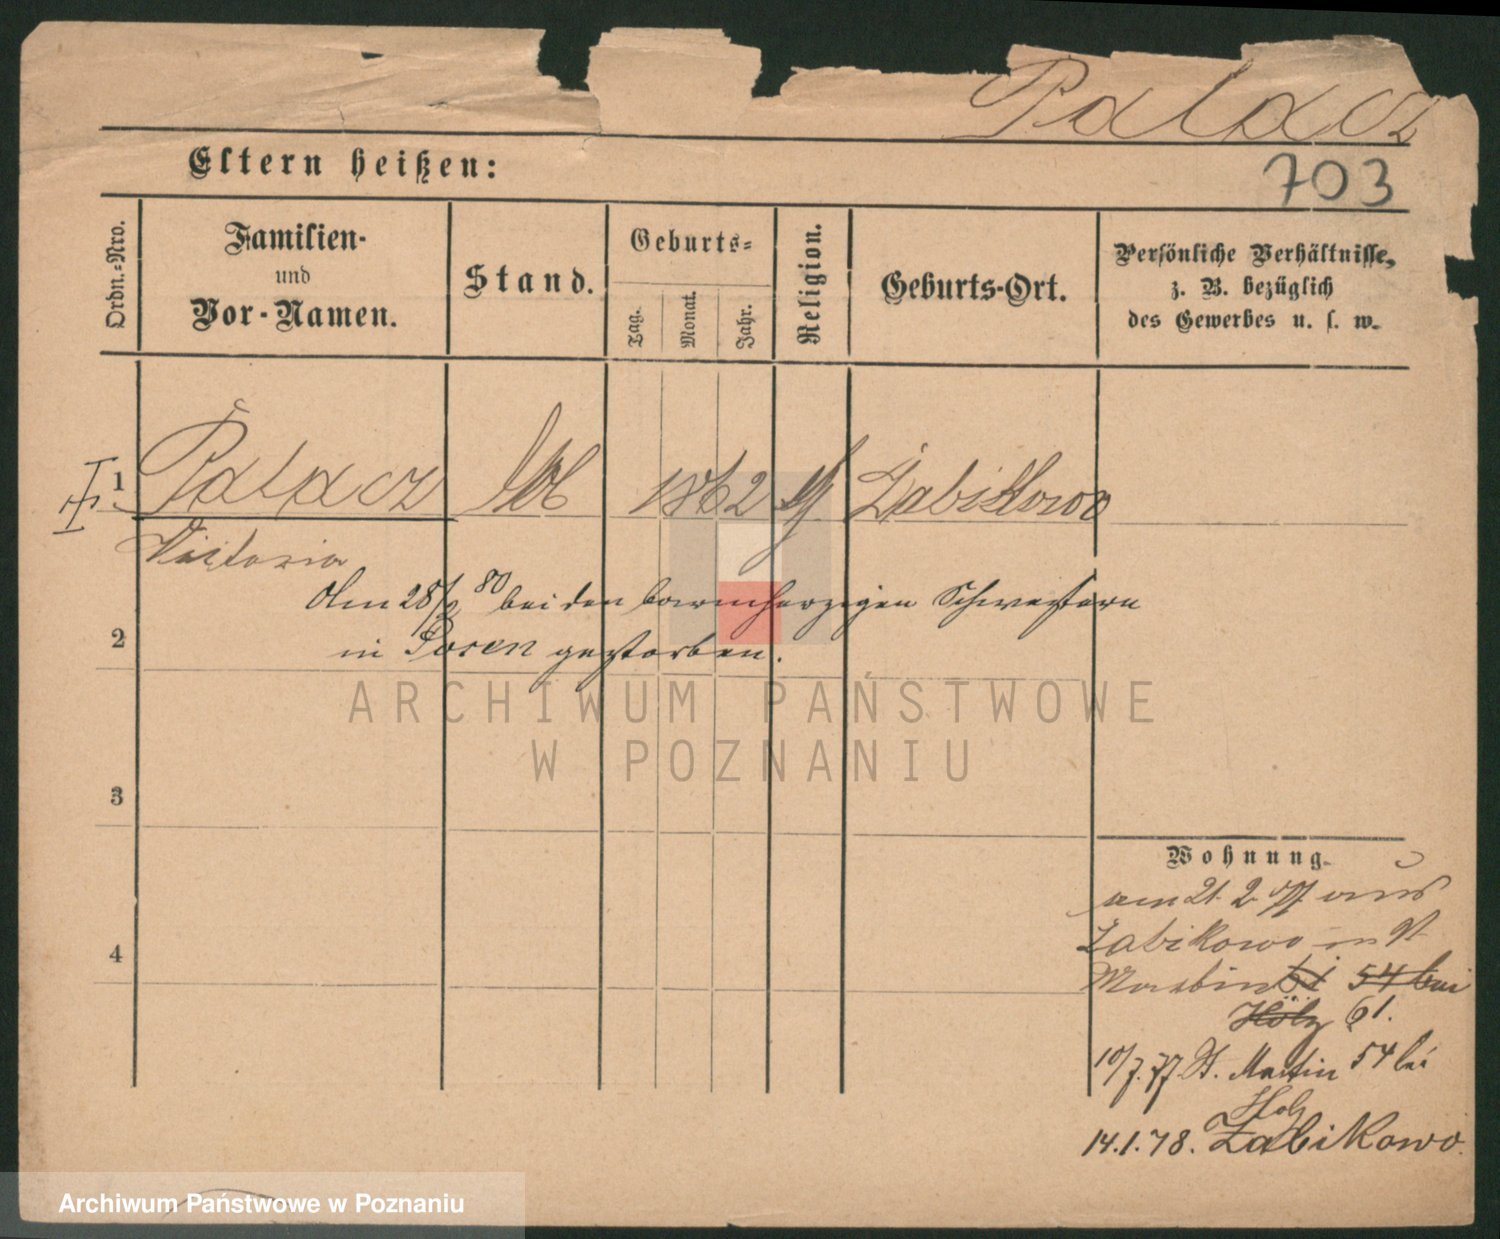 Palacz
Eltern heißen:
703
Ordn.=Nro.
Familien-
und
Vor-Namen.
Stand.
Geburts=
Tag.
Monat.
Jahr.
Religion.
Geburts-Ort.
Persönliche Verhältnisse,
z. B. bezüglich
des Gewerbes u. s. w.
1
Palacz
1862
Żabikowo
Victoria
Am 28/2 80 bei den barmherzigen Schwestern
2
in Posen gestorben.
ARCHIWUM PAŃSTWOWE
W POZNANIU
3
Wohnung.
am 21. 2. 77 aus
Zabikowo in St
4
Martin 54 bei
61.
10/7. 77. St. Martin 54 bei
Holz
14.1.78. Zabikowo.
Archiwum Państwowe w Poznaniu